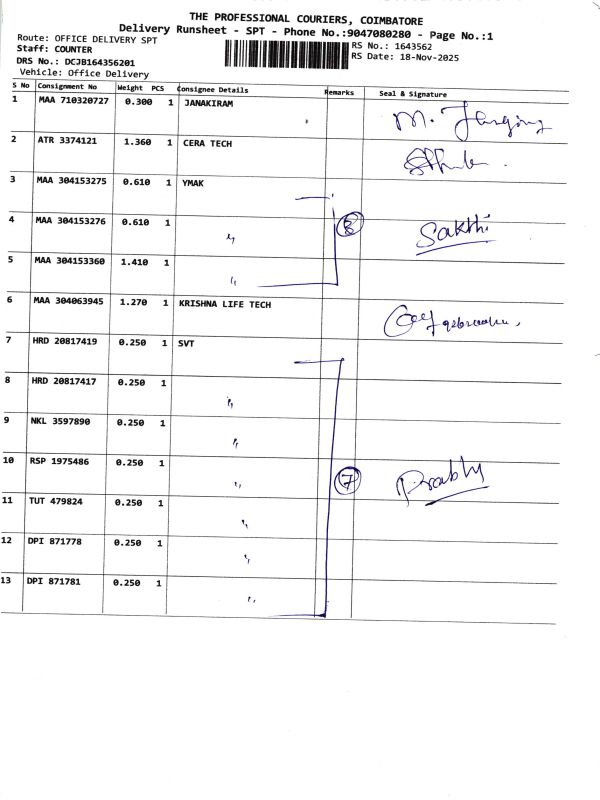 THE PROFESSIONAL COURIERS, COIMBATORE
Delivery Runsheet - SPT - Phone No.:9047080280 - Page No.:1
Route: OFFICE DELIVERY SPT
RS No.: 1643562
Staff: COUNTER
RS Date: 18-Nov-2025
DRS No.: DCJB164356201
Vehicle: Office Delivery
S No Consignment No Weight PCS Consignee Details Remarks Seal & Signature
1 MAA 710320727 0.300 1 JANAKIRAM
2 ATR 3374121 1.360 1 CERA TECH
3 MAA 304153275 0.610 1 YMAK
4 MAA 304153276 0.610 1 〃 Sakthi
5 MAA 304153360 1.410 1 〃
6 MAA 304063945 1.270 1 KRISHNA LIFE TECH
7 HRD 20817419 0.250 1 SVT
8 HRD 20817417 0.250 1 〃
9 NKL 3597890 0.250 1 〃
10 RSP 1975486 0.250 1 〃 7 Prabhu
11 TUT 479824 0.250 1 〃
12 DPI 871778 0.250 1 〃
13 DPI 871781 0.250 1 〃